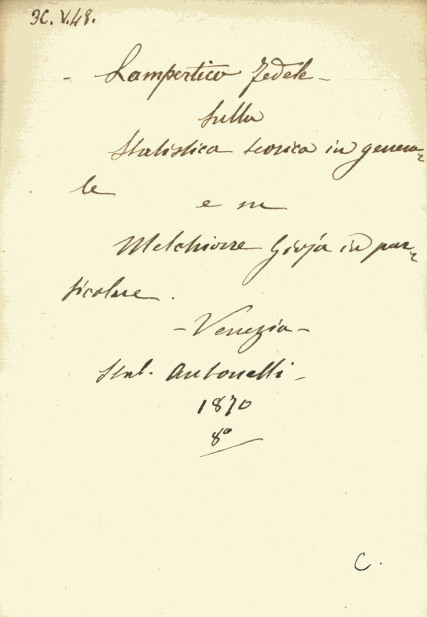 3C. V. 48.
- Lampertico Fedele -
Sulla
Statistica teorica in genera-
le
e su
Melchiorre Gioja in par-
ticolare.
- Venezia -
Stab. Antonelli -
1870
8º
C.